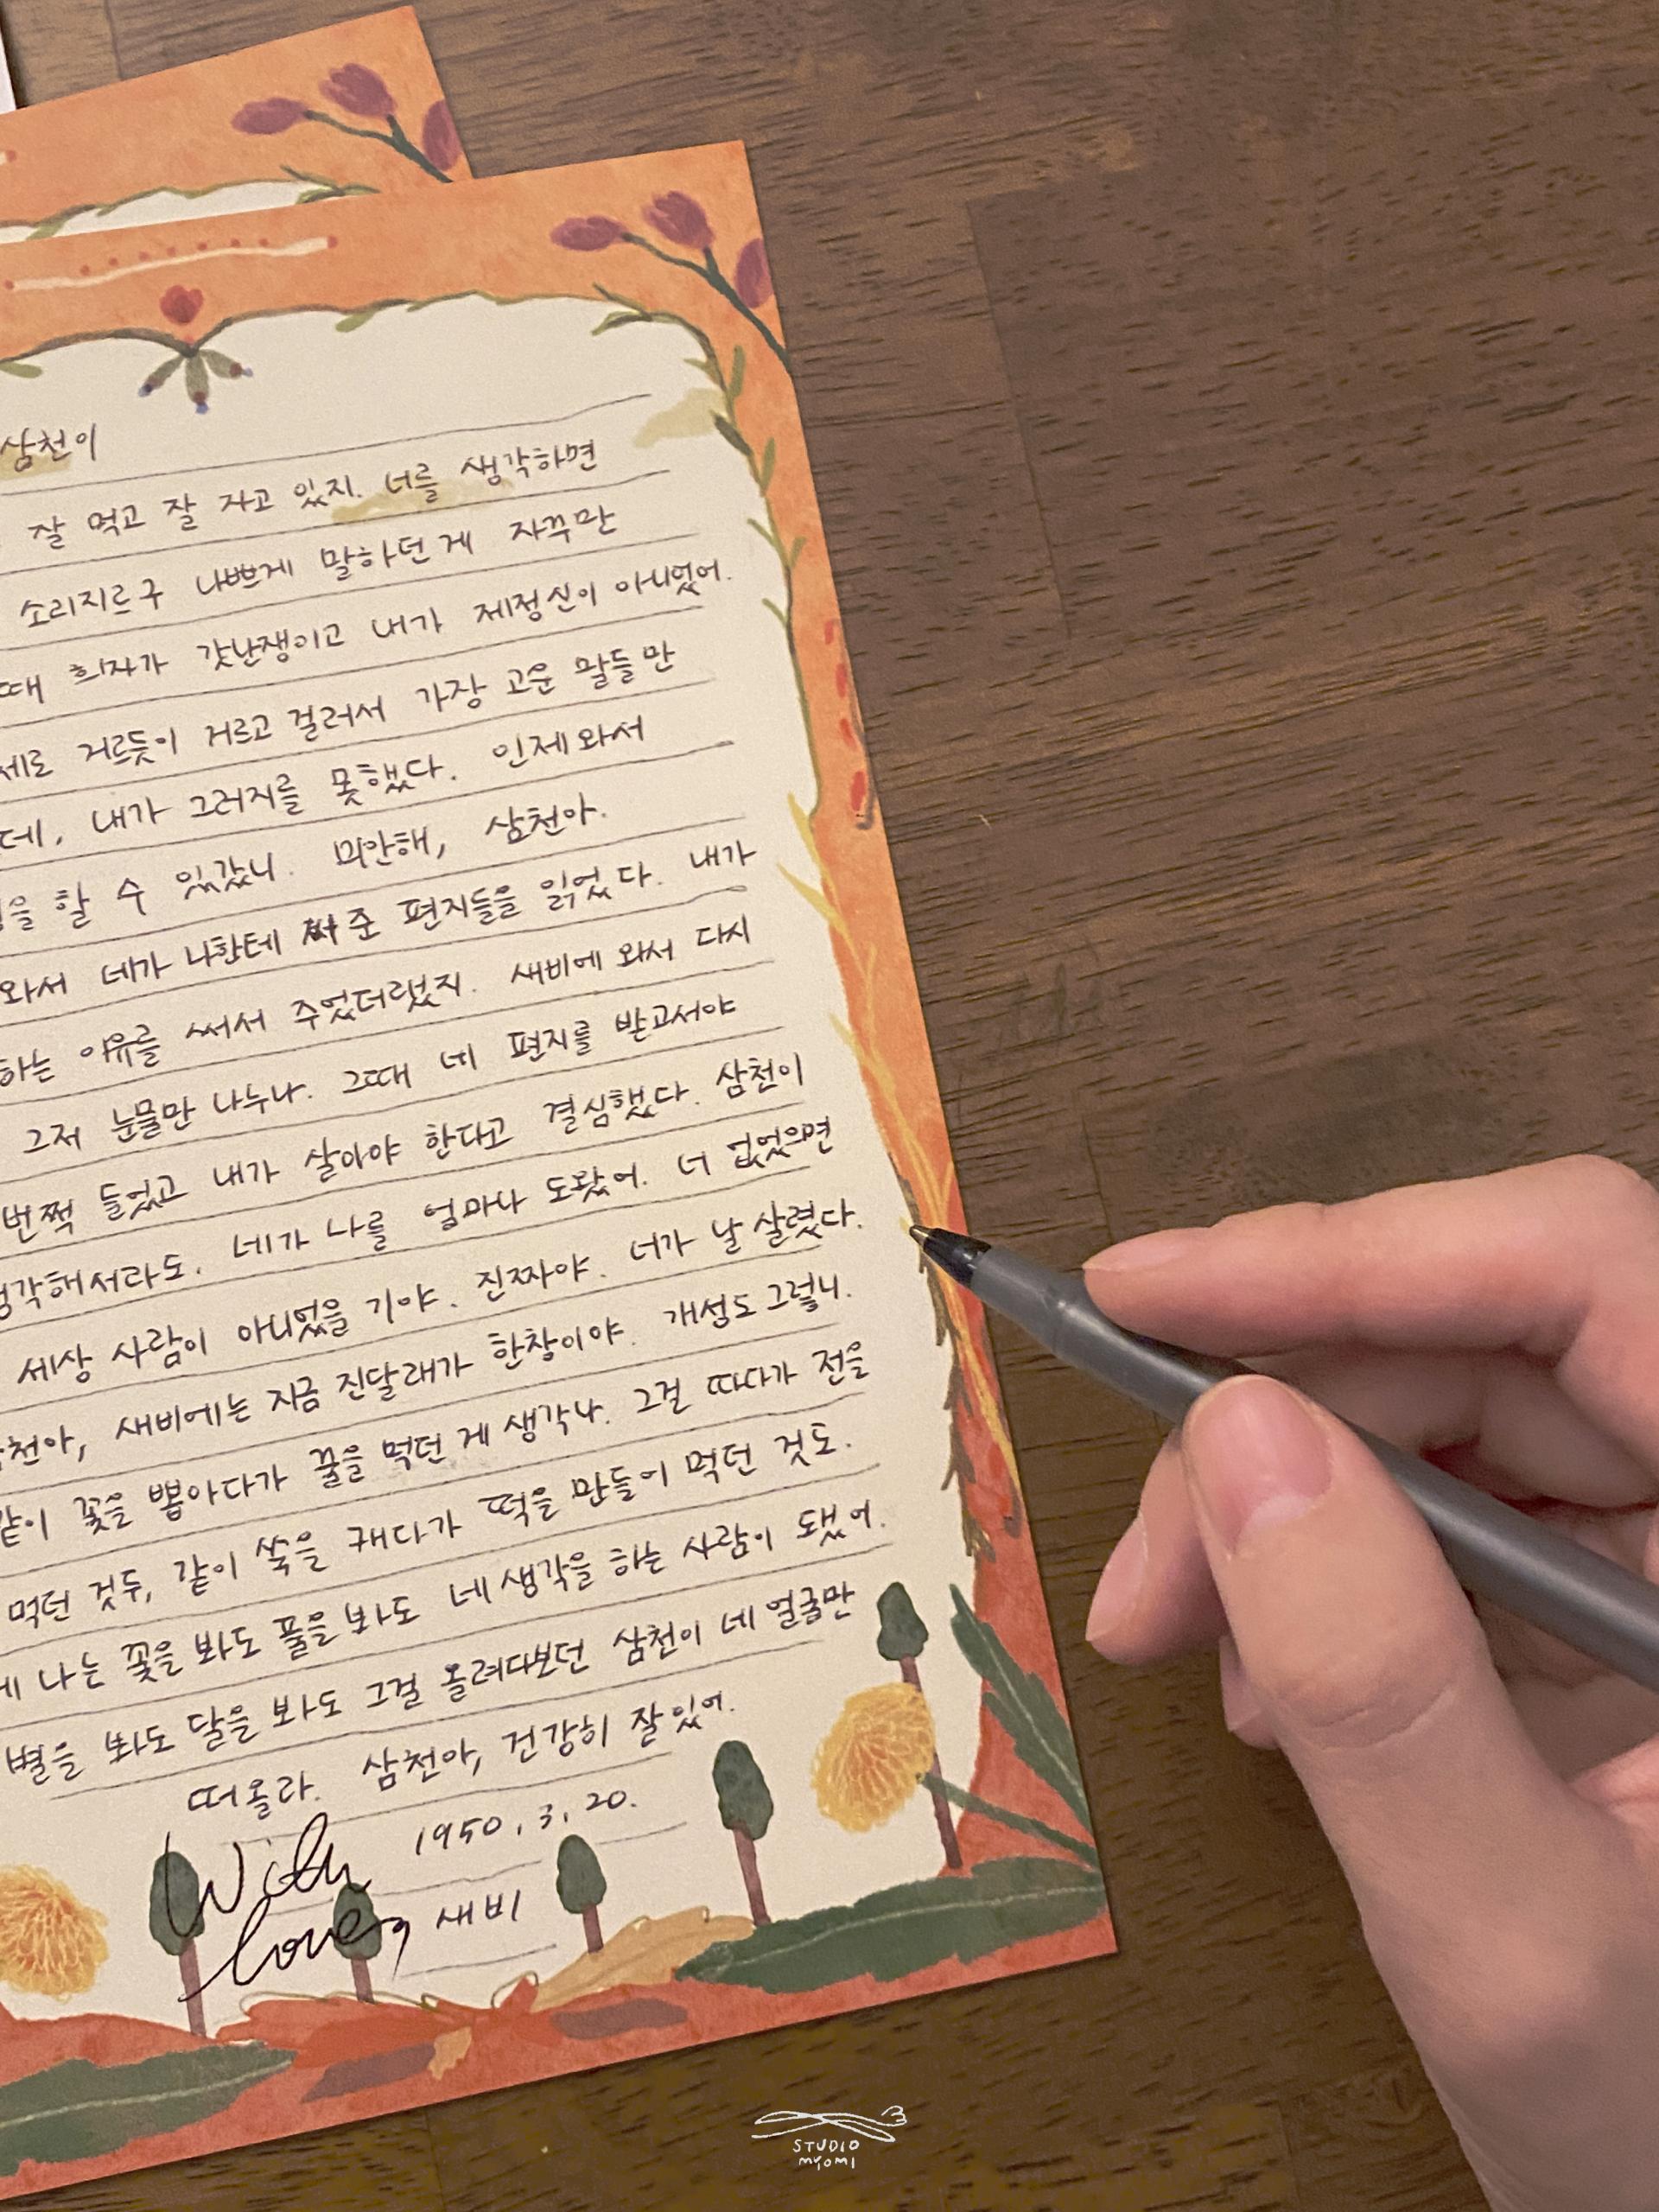 삼천이
잘 먹고 잘 자고 있지. 너를 생각하면
소리지르구 나쁘게 말하던 게 자꾸만
때 희자가 갓난쟁이고 내가 제정신이 아니었어.
세로 거르듯이 거르고 걸러서 가장 고운 말들만
데, 내가 그러지를 못했다. 인제 와서
을 할 수 있갔니. 미안해, 삼천아.
와서 네가 나한테 써 준 편지들을 읽었다. 내가
하는 이유를 써서 주었더랬지. 새비에 와서 다시
그저 눈물만 나누나. 그때 네 편지를 받고서야
번쩍 들었고 내가 살아야 한다고 결심했다. 삼천이
생각해서라도. 네가 나를 얼마나 도왔어. 너 없었으면
세상 사람이 아니었을 기야. 진짜야. 너가 날 살렸다.
삼천아, 새비에는 지금 진달래가 한창이야. 개성도 그렇니.
같이 꽃을 뽑아다가 꿀을 먹던 게 생각나. 그걸 따다가 전을
먹던 것두, 같이 쑥을 캐다가 떡을 만들어 먹던 것도.
나는 꽃을 봐도 풀을 봐도 네 생각을 하는 사람이 됐어.
별을 봐도 달을 봐도 그걸 올려다보던 삼천이 네 얼굴만
떠올라. 삼천아, 건강히 잘 있어.
1950. 3. 20.
With
love, 새비
STUDIO
myomi